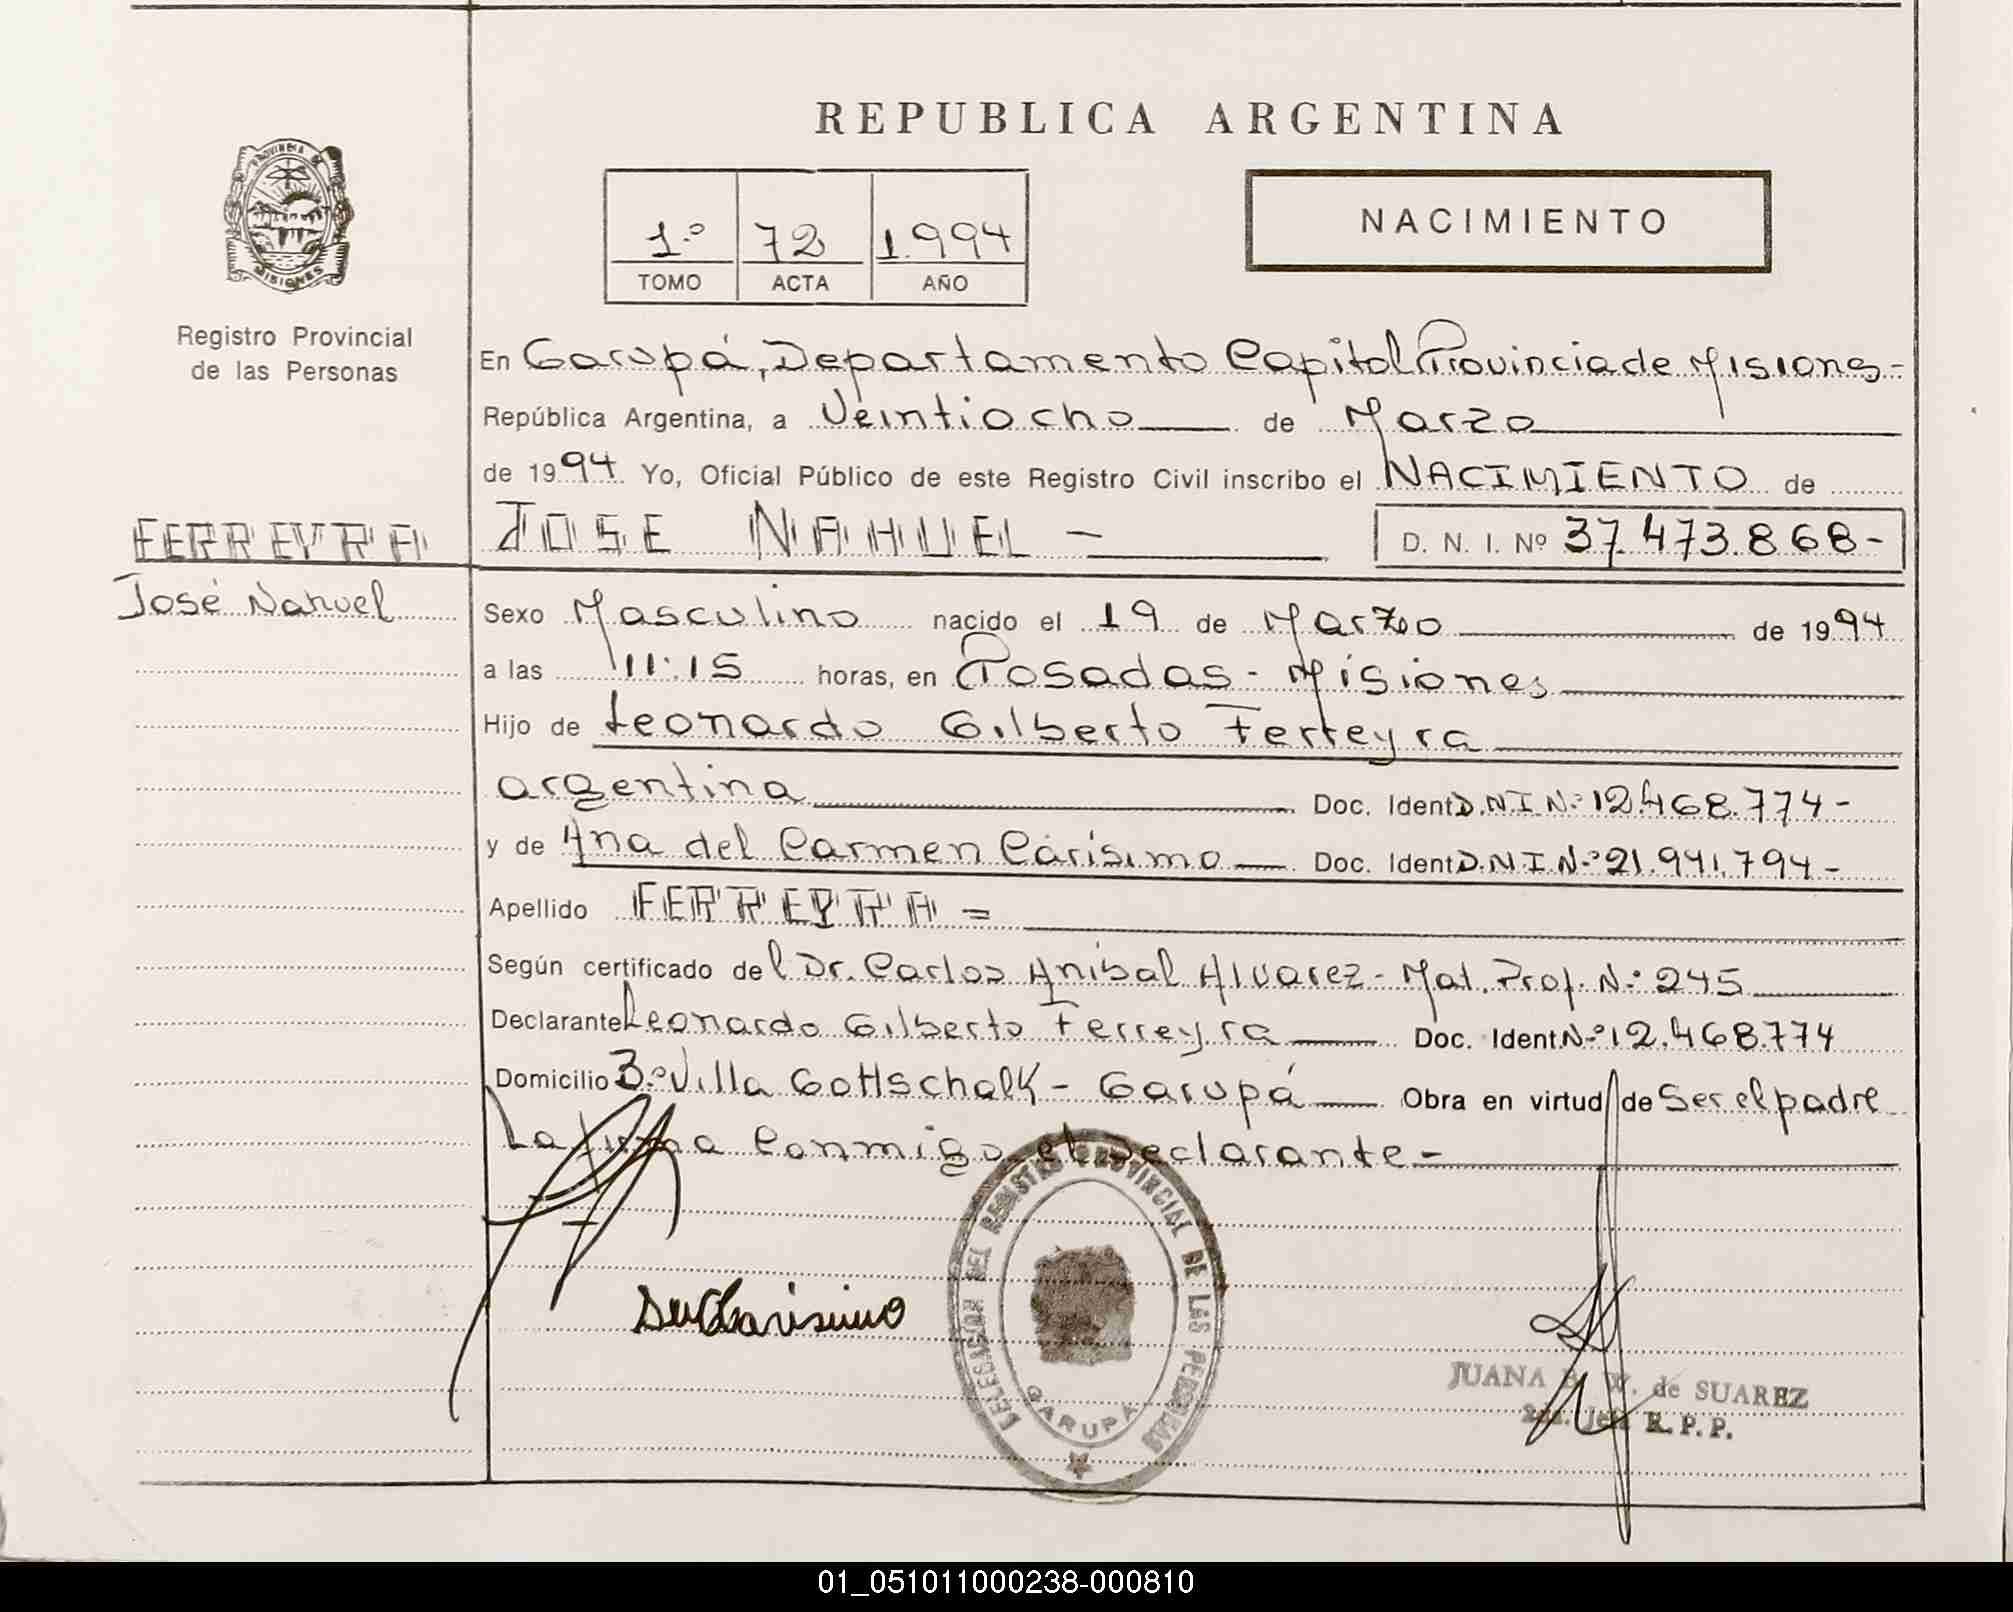 REPUBLICA ARGENTINA
PROVINCIA DE
MISIONES
Registro Provincial
de las Personas
1.º 72 1.994
TOMO ACTA AÑO
NACIMIENTO
En Garupá, Departamento Capital Provincia de Misiones-
República Argentina, a Veintiocho de Marzo
de 1994 Yo, Oficial Público de este Registro Civil inscribo el NACIMIENTO de
FERREYRA JOSE NAHUEL - D. N. I. Nº 37.473.868-
José Nahuel
Sexo Masculino nacido el 19 de Marzo de 1994
a las 11:15 horas, en Posadas - Misiones
Hijo de Leonardo Gilberto Ferreyra
argentina Doc. Ident D.N.I.N.º 12.468.774-
y de Ana del Carmen Carísimo Doc. Ident D.N.I.N.º 21.941.794-
Apellido FERREYRA =
Según certificado del Dr. Carlos Aníbal Alvarez - Mat. Prof. N.º 245
Declarante Leonardo Gilberto Ferreyra Doc. Ident. N.º 12.468.774
Domicilio B.º Villa Gottschalk - Garupá Obra en virtud de Ser el padre
La firma Conmigo el Declarante -
DELEGACION DEL REGISTRO PROVINCIAL DE LAS PERSONAS
GARUPA
JUANA W. de SUAREZ
R.P.P.
01_051011000238-000810